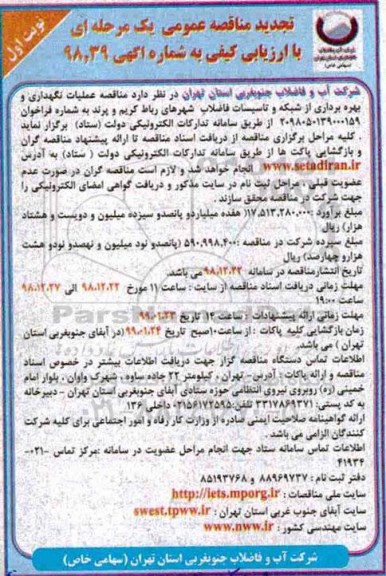 نوبت اول
تجدید مناقصه عمومی یک مرحله ای
با ارزیابی کیفی به شماره آگهی ۹۸٫۳۹
شرکت آب و فاضلاب جنوبغربی استان تهران
(سهامی خاص)
شرکت آب و فاضلاب جنوبغربی استان تهران در نظر دارد مناقصه عملیات نگهداری و
بهره برداری از شبکه و تاسیسات فاضلاب شهرهای رباط کریم و پرند به شماره فراخوان
۲۰۹۸۰۵۰۱۳۹۰۰۰۱۵۹ از طریق سامانه تدارکات الکترونیکی دولت (ستاد) برگزار نماید
. کلیه مراحل برگزاری مناقصه از دریافت اسناد مناقصه تا ارائه پیشنهاد مناقصه گران
و بازگشایی پاکت ها از طریق سامانه تدارکات الکترونیکی دولت ( ستاد) به آدرس
www.setadiran.ir انجام خواهد شد و لازم است مناقصه گران در صورت عدم
عضویت قبلی ، مراحل ثبت نام در سایت مذکور و دریافت گواهی امضای الکترونیکی را
جهت شرکت در مناقصه محقق سازند .
مبلغ برآورد :۱۷٫۵۱۳٫۲۸۰٫۰۰۰( هفده میلیاردو پانصدو سیزده میلیون و دویست و هشتاد
هزار) ریال
مبلغ سپرده شرکت در مناقصه :۵۹۰٫۹۹۸٫۴۰۰ (پانصدو نود میلیون و نهصدو نودو هشت
هزارو چهارصد) ریال
تاریخ انتشارمناقصه در سامانه ۹۸٫۱۲٫۲۲ می باشد.
مهلت زمانی دریافت اسناد مناقصه از سایت : ساعت ۱۱ مورخ ۹۸٫۱۲٫۲۲ الی ۹۸٫۱۲٫۲۷
ساعت ۱۹:۰۰
مهلت زمانی ارائه پیشنهادات : ساعت ۱۴ تاریخ
زمان بازگشایی کلیه پاکات : از ساعت ۱۰صبح تاریخ ۹۹٫۰۱٫۲۴ (در آبفای جنوبغربی استان
تهران ) می باشد.
اطلاعات تماس دستگاه مناقصه گزار جهت دریافت اطلاعات بیشتر در خصوص اسناد
مناقصه و ارائه پاکات : آدرس - تهران ، کیلومتر ۲۲ جاده ساوه ، شهرک واوان ، بلوار امام
خمینی (ره) روبروی نیروی انتظامی حوزه ستادی آبفای جنوبغربی استان تهران - دبیرخانه
به کد پستی: ۳۳۱۷۸۶۹۳۷۱ تلفن:۰۲۱۵۶۱۷۲۵۹۵ داخلی ۱۳۶
ارائه گواهینامه صلاحیت ایمنی صادره از وزارت کار رفاه و امور اجتماعی برای کلیه شرکت
کنندگان الزامی می باشد .
اطلاعات تماس سامانه ستاد جهت انجام مراحل عضویت در سامانه :مرکز تماس ۰۲۱-
۴۱۹۳۴
دفتر ثبت نام : ۸۸۹۶۹۷۳۷ و ۸۵۱۹۳۷۶۸
سایت ملی مناقصات : http://iets.mporg.ir
سایت آبفای جنوب غربی استان تهران : swest.tpww.ir
سایت مهندسی کشور : www.nww.ir
شرکت آب و فاضلاب جنوبغربی استان تهران (سهامی خاص)